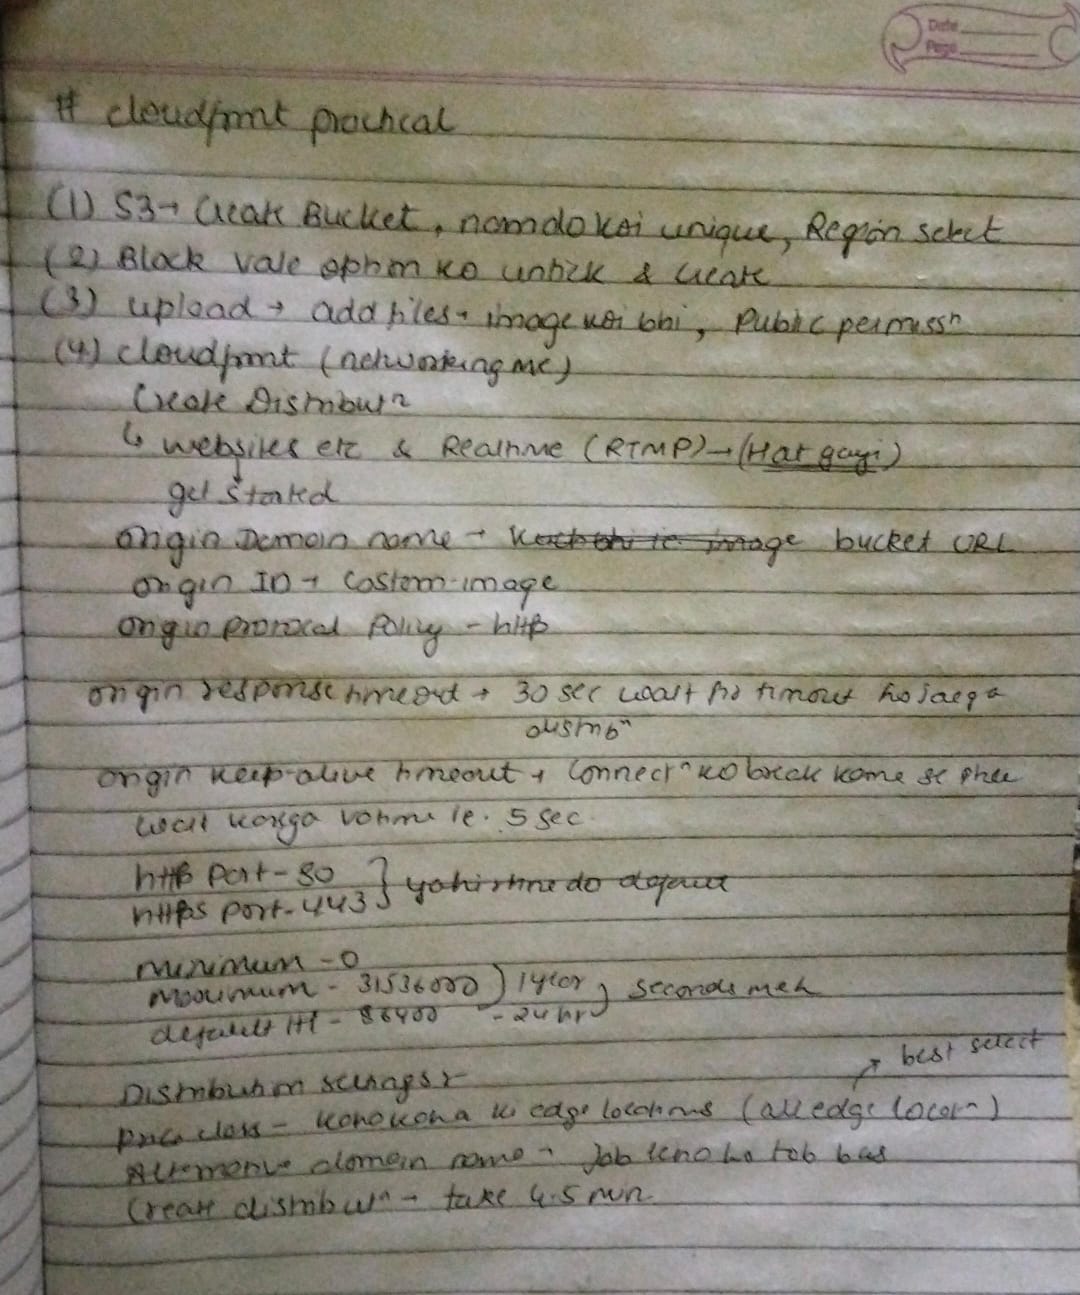 Date
Page
# cloudfront practical
(1) S3 → Create Bucket, nam do koi unique, Region select
(2) Block vale option ko untick & create
(3) upload → add files → image koi bhi, Public permissn
(4) cloudfront (networking me)
Create Distributn
↳ websites etc & Realtime (RTMP) → (Hat gayi)
get started
origin Domain name → kuch bhi ie image bucket URL
origin ID → Costom-image
origin protocol Policy - http
origin response timeout → 30 sec wait fir timout ho jaega
distribn
origin keep-alive timeout → Connectn ko break karne se phle
wait karega vo time ie. 5 sec.
http Port - 80
https port - 443 } yahi rhne do default
minimum - 0
maximum - 31536000 ) 1 year } seconds meh
default ttl - 86400 - 24 hr
best select
Distribution settings :-
Price class - kona kona ki edge locations (all edge locatn)
Alternative domain name → Jab lena ho tab bas
Create distributn → take 4-5 min